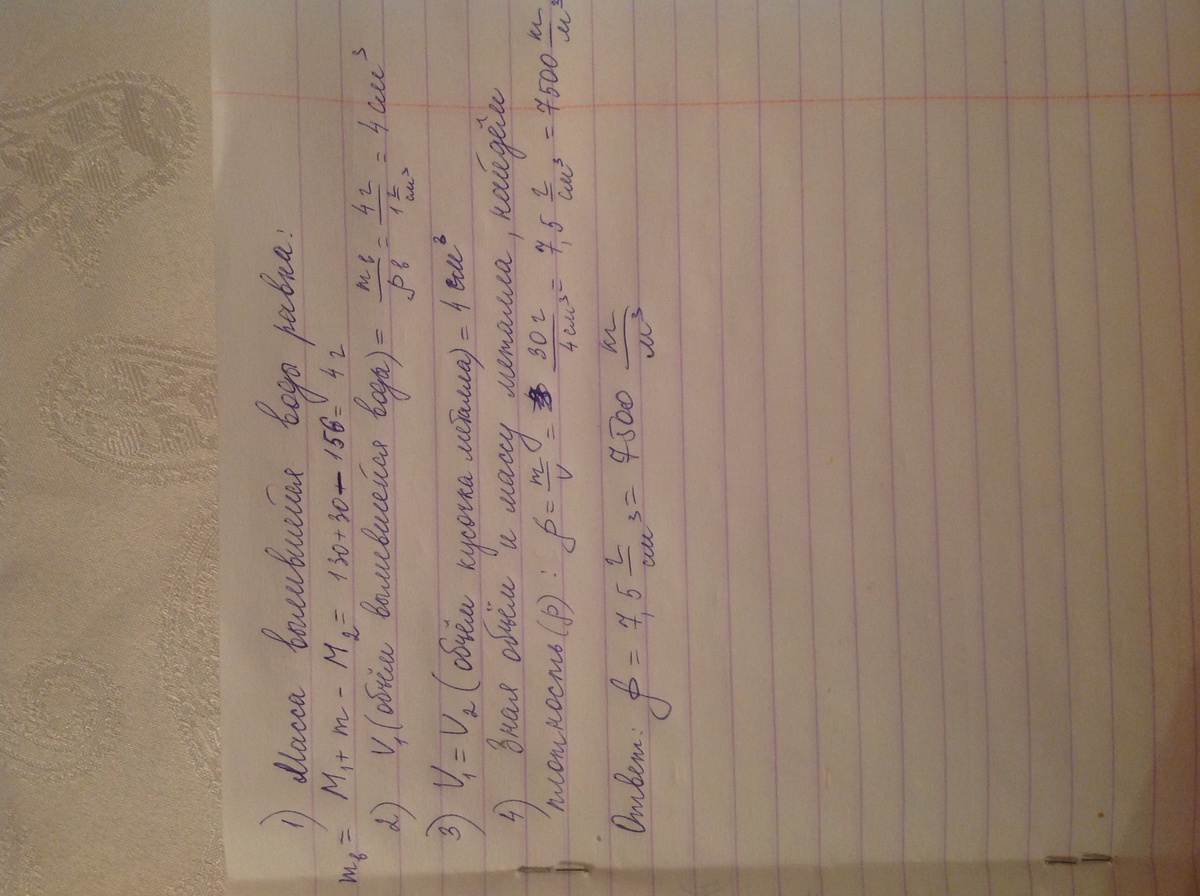 1) Масса вылившейся воды равна:
mв = M₁ + m - M₂ = 130+30-156= 4 г
2) V₁ (объём вылившейся воды) = mв/ρв = 4 г/1 г/см³ = 4 см³
3) V₁ = V₂ (объём кусочка металла) = 4 см³
4) Зная объём и массу металла, найдём
плотность (ρ): ρ = m/V = 30 г/4 см³ = 7,5 г/см³ = 7500 кг/м³
Ответ: ρ = 7,5 г/см³ = 7500 кг/м³